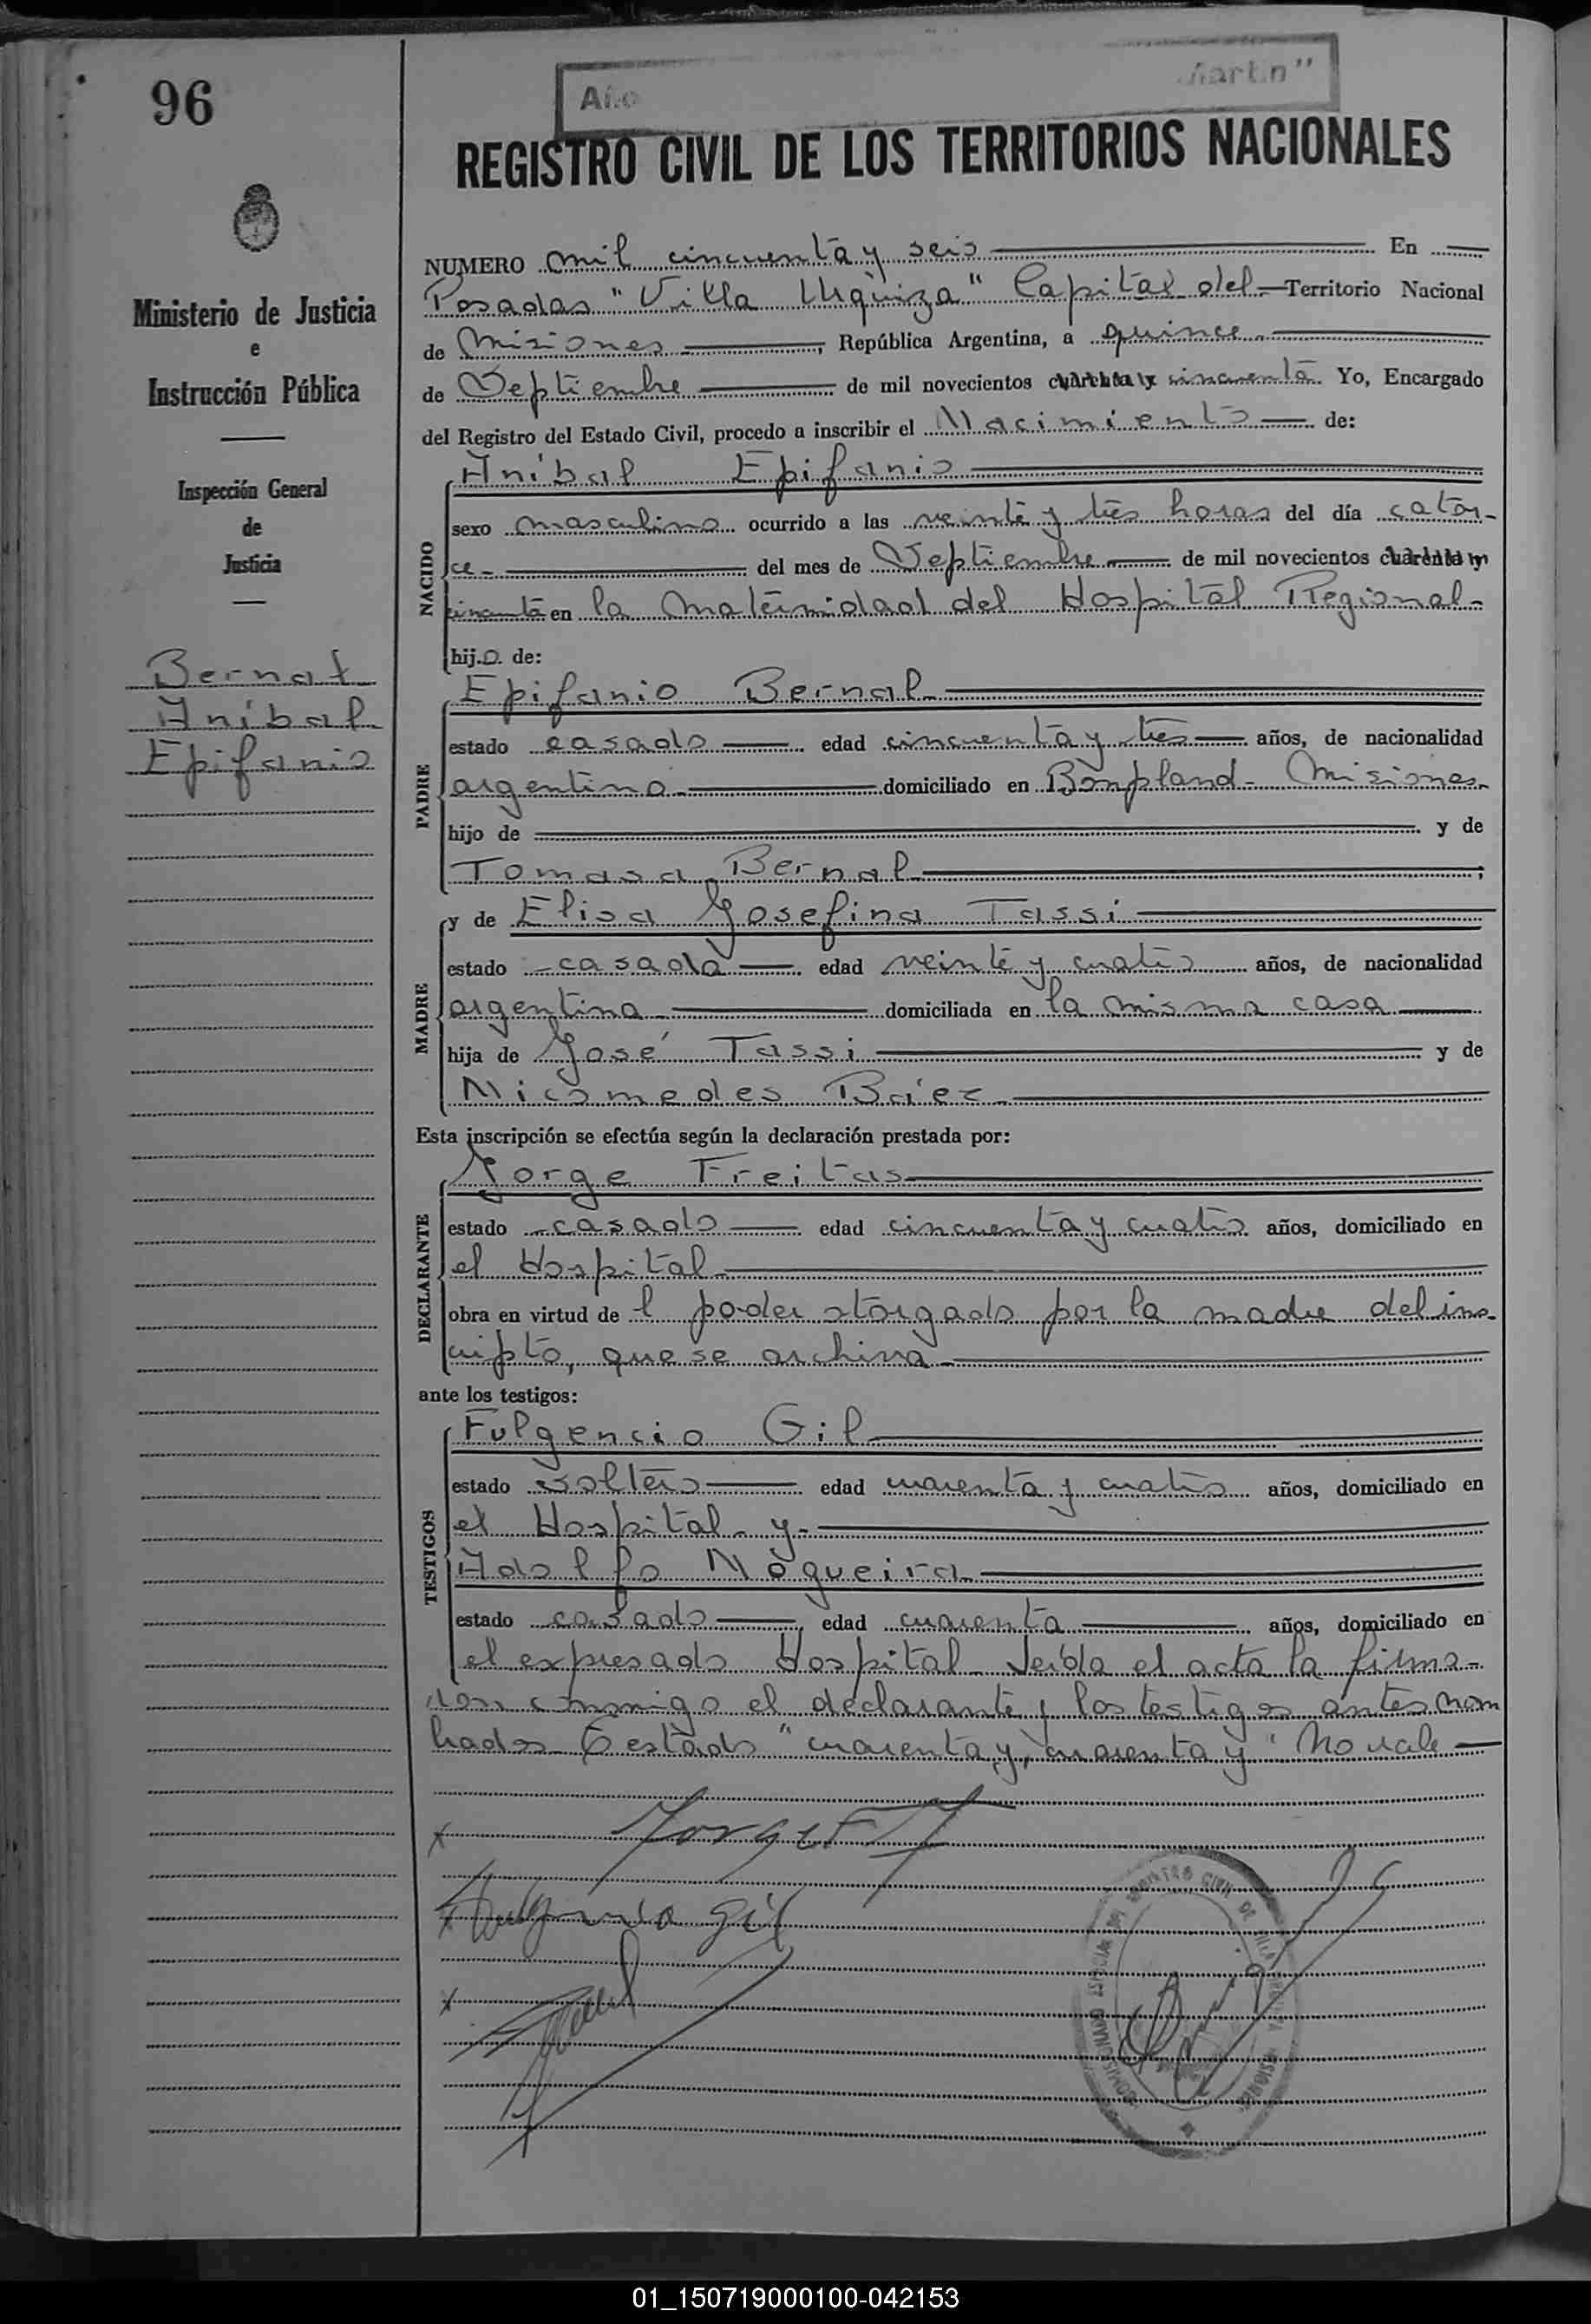 96
Ministerio de Justicia
e
Instrucción Pública
Inspección General
de
Justicia
Bernal
Aníbal
Epifanio
Año
Martín"
REGISTRO CIVIL DE LOS TERRITORIOS NACIONALES
NUMERO mil cincuenta y seis En
Posadas "Villa Urquiza" Capital del Territorio Nacional
de Misiones, República Argentina, a quince
de Septiembre de mil novecientos cuarenta y cincuenta. Yo, Encargado
del Registro del Estado Civil, procedo a inscribir el Nacimiento de:
NACIDO
Aníbal Epifanio
sexo masculino ocurrido a las veinte y tres horas del día cator-
ce- del mes de Septiembre de mil novecientos cuarenta y
cincuenta en la Maternidad del Hospital Regional-
hijo de:
PADRE
Epifanio Bernal
estado casado edad cincuenta y tres años, de nacionalidad
argentino domiciliado en Bonpland - Misiones-
hijo de y de
Tomasa Bernal;
MADRE
y de Elisa Josefina Tassi
estado casada edad veinte y cuatro años, de nacionalidad
argentina domiciliada en la misma casa
hija de José Tassi y de
Nicomedes Báez
Esta inscripción se efectúa según la declaración prestada por:
DECLARANTE
Jorge Freitas
estado casado edad cincuenta y cuatro años, domiciliado en
el Hospital
obra en virtud de l poder otorgado por la madre del ins-
cripto, que se archiva
ante los testigos:
TESTIGOS
Fulgencio Gil
estado soltero edad cuarenta y cuatro años, domiciliado en
el Hospital y
Adolfo Nogueira
estado casado edad cuarenta años, domiciliado en
el expresado Hospital Leída el acta la firma-
ron conmigo el declarante y los testigos antes nom
brados Testado "cuarenta y, cuarenta y" No vale
Fulgencio Gil
REGISTRO CIVIL DE VILLA URQUIZA MISIONES
01_150719000100-042153